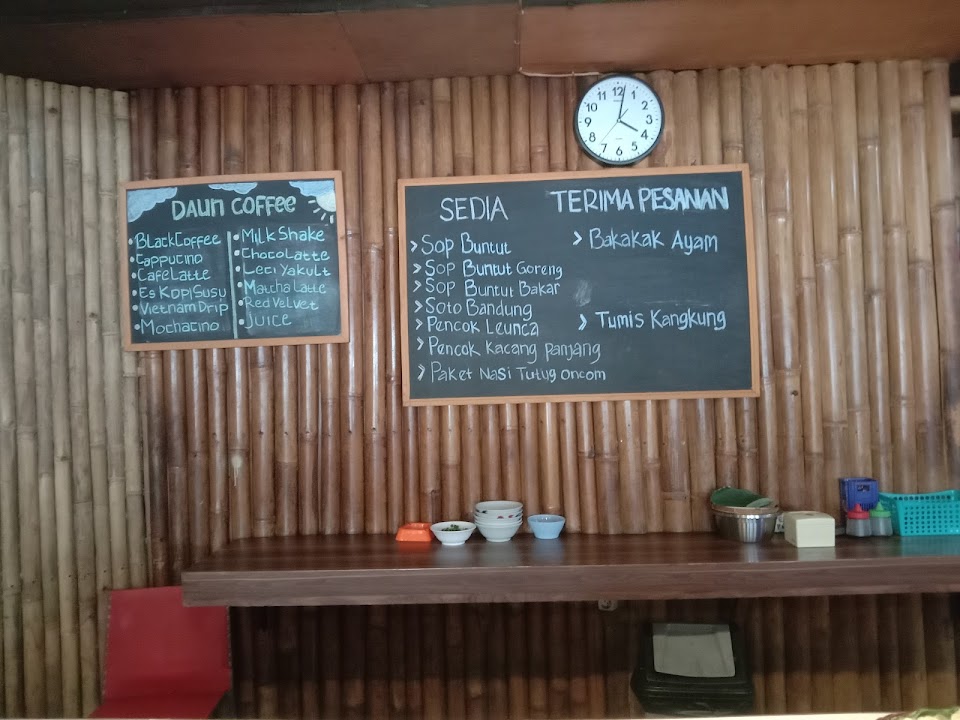 Daun Coffee
• Black Coffee
• Cappucino
• Cafe Latte
• Es Kopi Susu
• Vietnam Drip
• Mochacino
• Milk Shake
• Choco Latte
• Leci Yakult
• Matcha Latte
• Red Velvet
• Juice
SEDIA
> Sop Buntut
> Sop Buntut Goreng
> Sop Buntut Bakar
> Soto Bandung
> Pencok Leunca
> Pencok Kacang Panjang
> Paket Nasi Tutug Oncom
TERIMA PESANAN
> Bakakak Ayam
> Tumis Kangkung
12
1
2
3
4
5
6
7
8
9
10
11